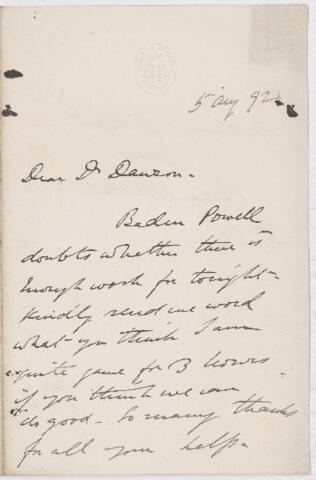 5 Aug 92
Dear Dr Dawson.
Baden Powell
doubts whether there is
enough work for tonight -
Kindly send me word
what you think I am
quite game for 3 hours
if you think we can
do good - So many thanks
for all your help -